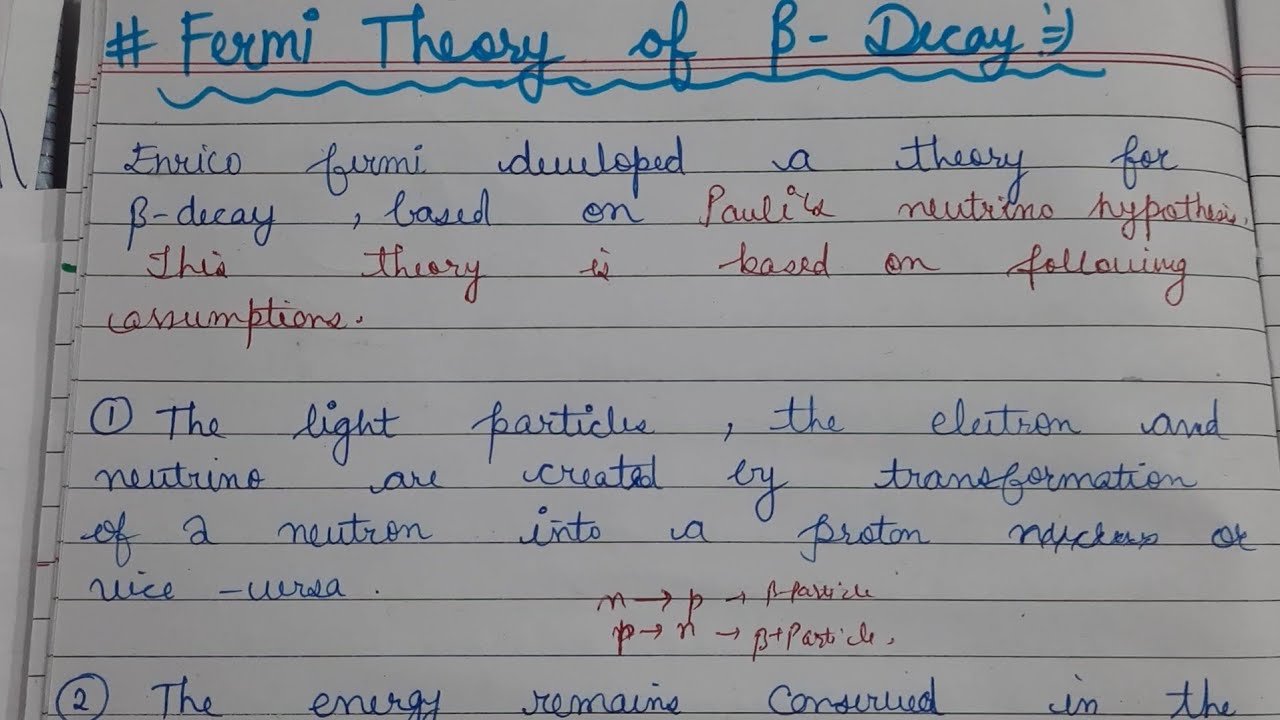 # Fermi Theory of β- Decay :=)
Enrico fermi developed a theory for
β-decay , based on Pauli's neutrino hypothesis.
This theory is based on following
assumptions.
① The light particles , the electron and
neutrino are created by transformation
of a neutron into a proton or
vice -versa .
n → p → β-Particle
p → n → β+Particle.
② The energy remains conserved in the